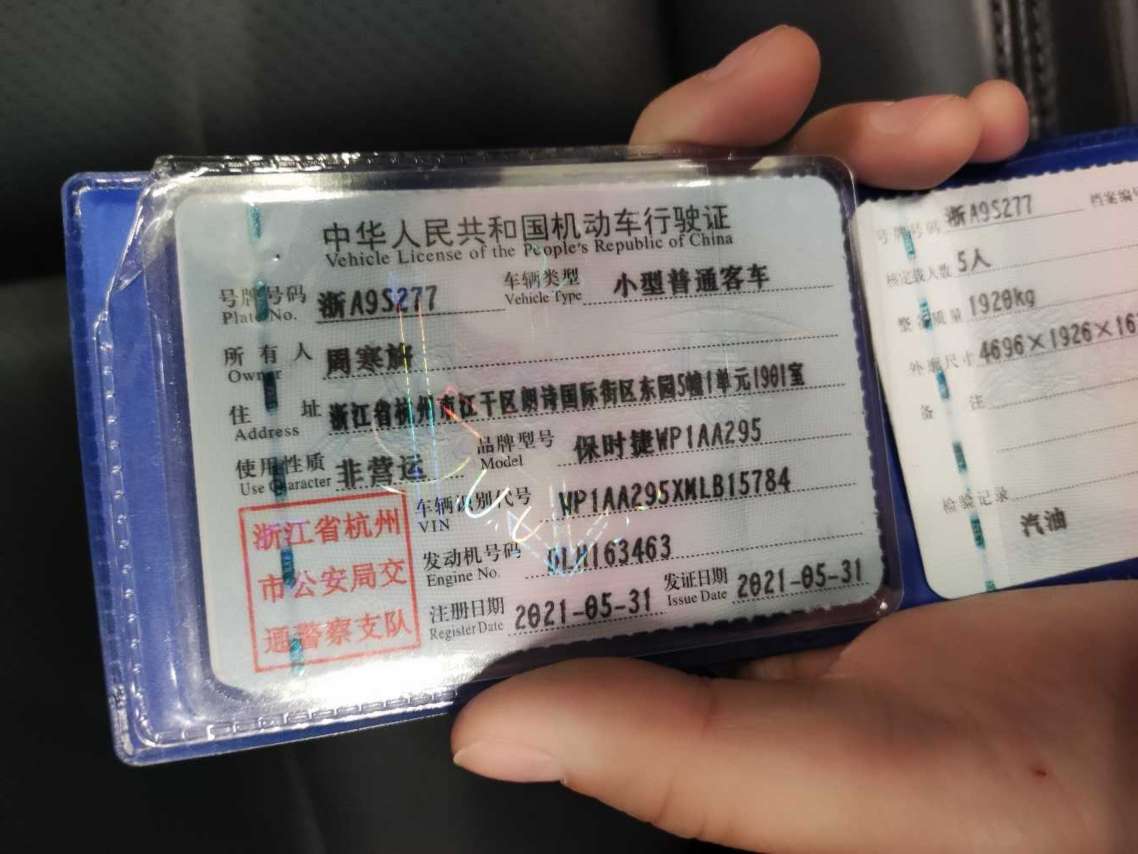 中华人民共和国机动车行驶证
Vehicle License of the People's Republic of China
号牌号码 浙A9S277 车辆类型 小型普通客车
Plate No. Vehicle Type
所有人 周寒旂
Owner
住址 浙江省杭州市江干区朗诗国际街区东园5幢1单元1901室
Address
使用性质 非营运 品牌型号 保时捷WP1AA295
Use Character Model
车辆识别代号 WP1AA295XMLB15784
VIN
发动机号码 DLH163463
Engine No.
注册日期 2021-05-31 发证日期 2021-05-31
Register Date Issue Date
浙江省杭州
市公安局交
通警察支队
号牌号码 浙A9S277 档案编
核定载人数 5人
整备质量 1920kg
外廓尺寸 4696×1926×16
备注
检验记录
汽油